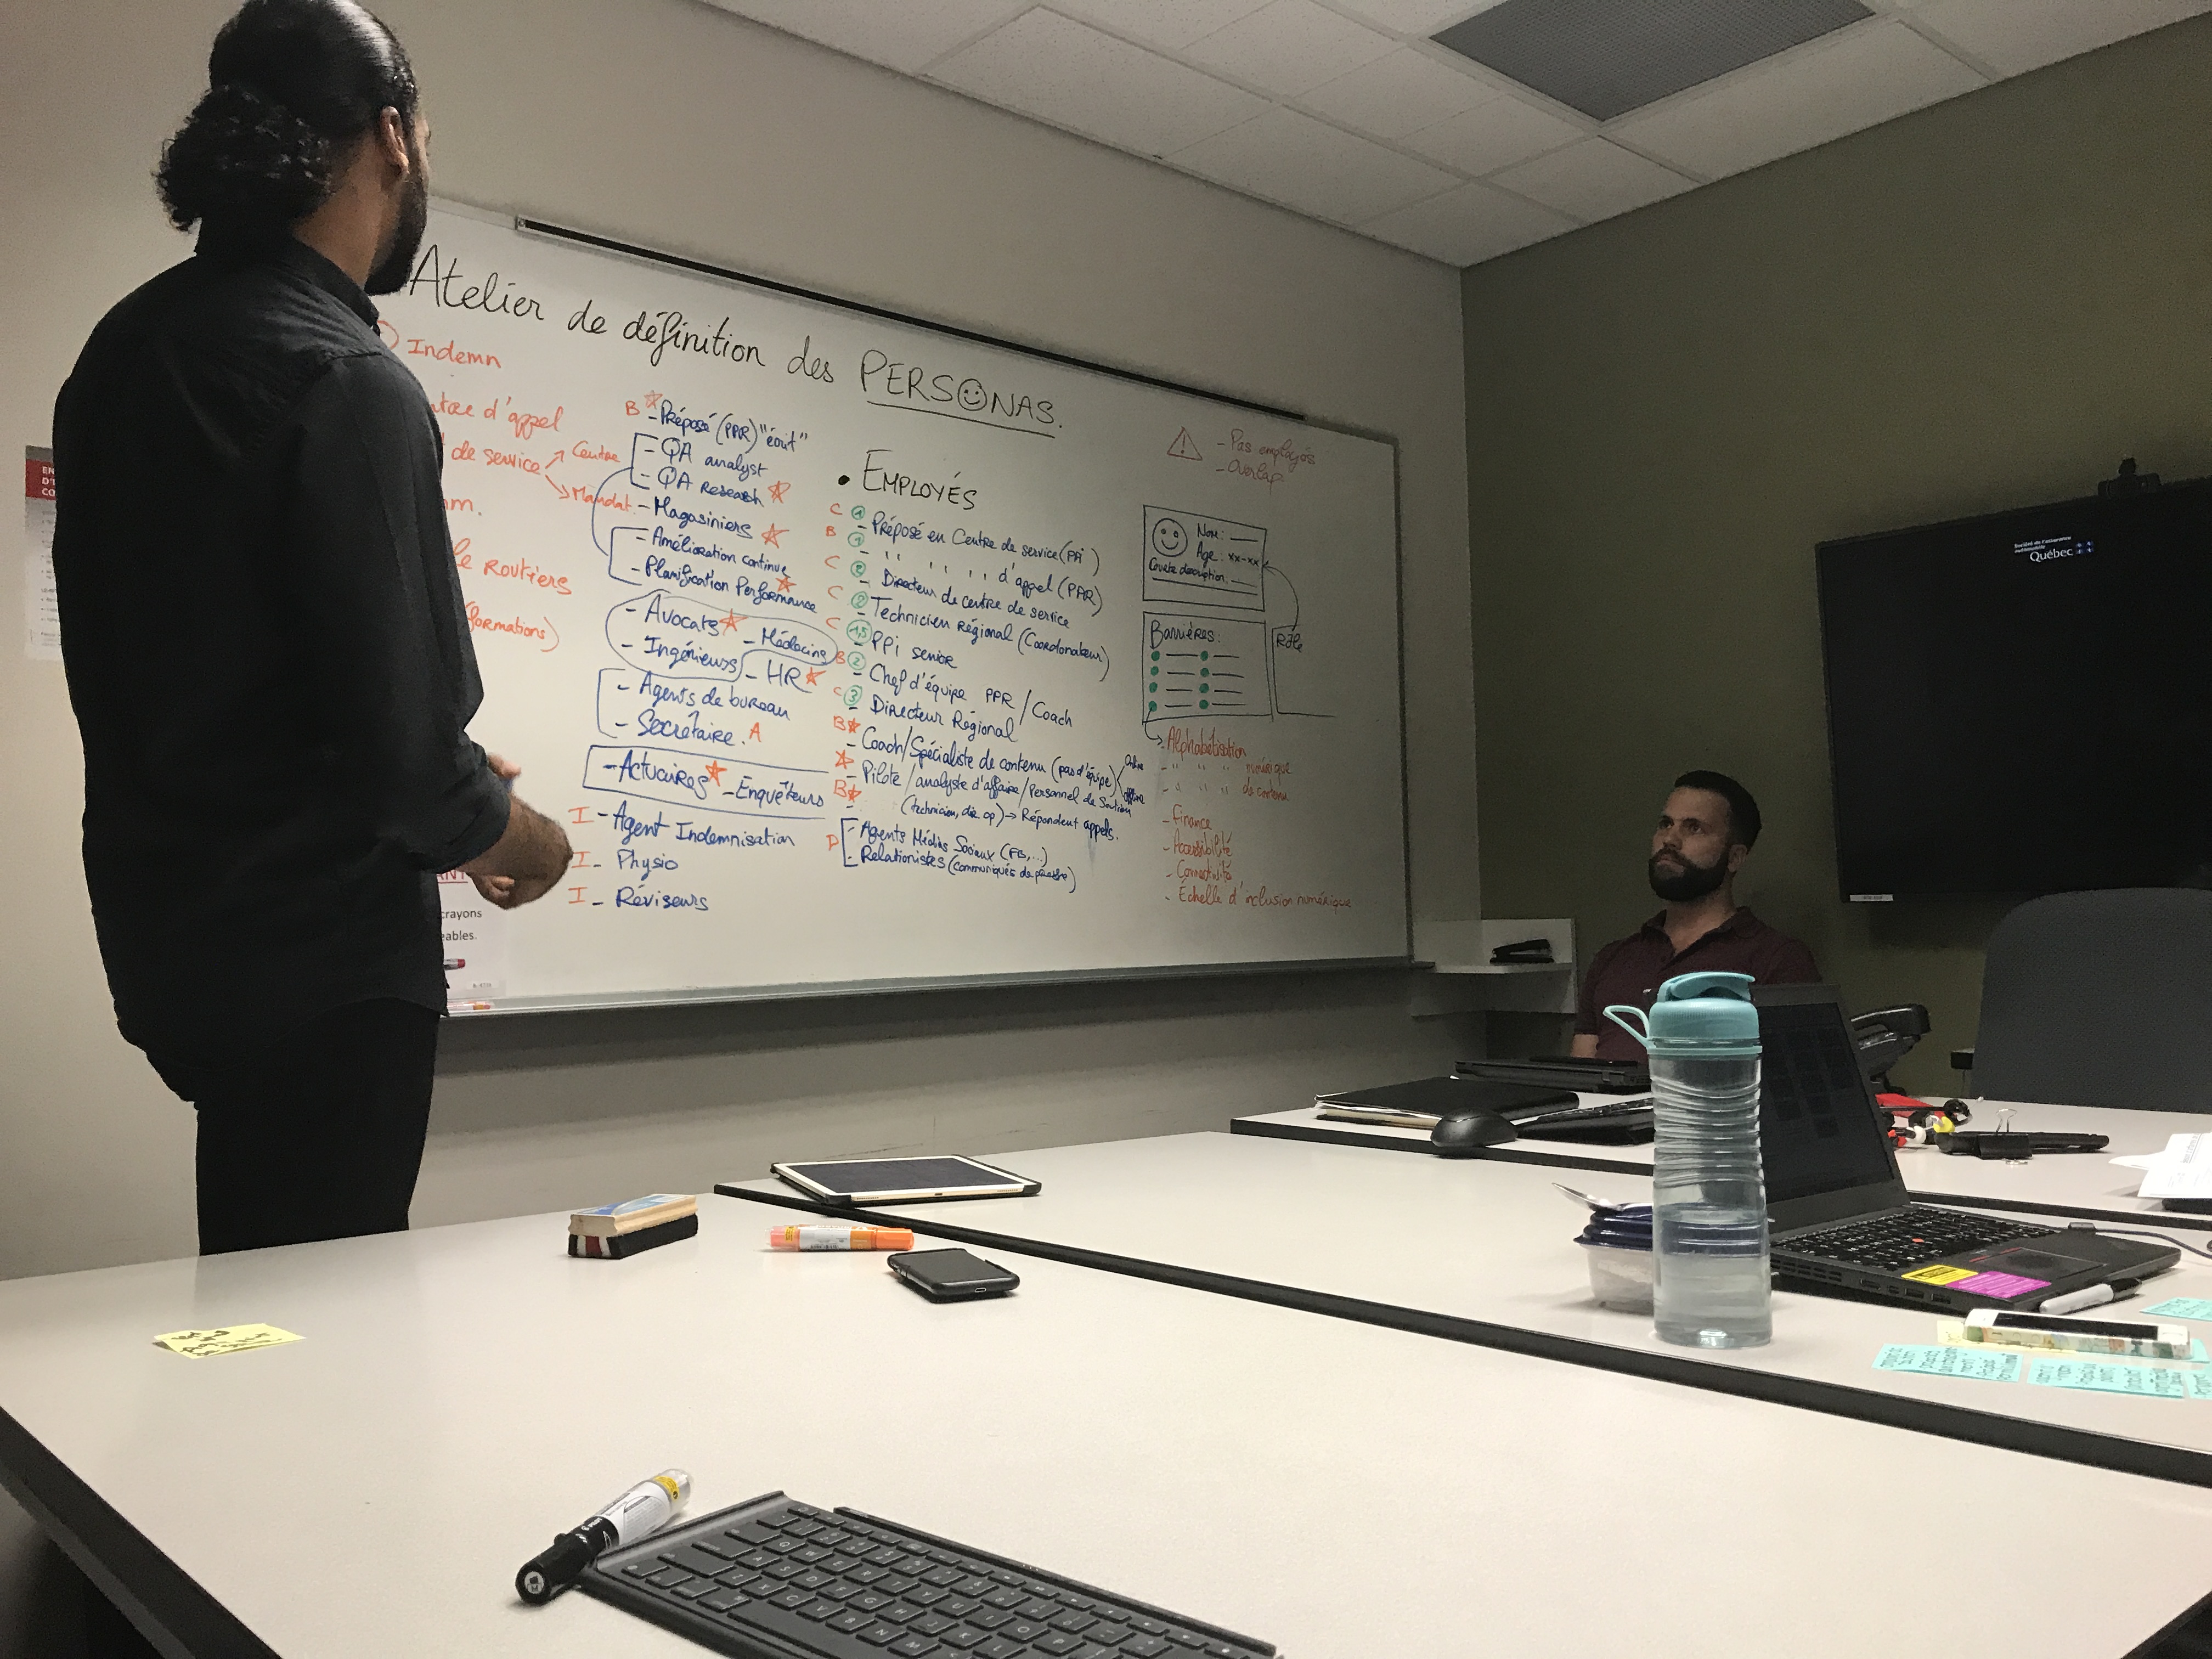 Atelier de définition des PERSONAS.
Indemn
d'appel
de service
Centre
Mandat.
le Routiers
(formations)
B
- Préposé (PPR) "écrit"
- QA analyst
- QA Research
- Magasiniers
- Amélioration continue
- Planification Performance
- Avocats
- Médecins
- Ingénieurs
- HR
- Agents de bureau
- Secrétaire. A
- Actuaires
- Enquêteurs
I - Agent Indemnisation
I - Physio
I - Réviseurs
• EMPLOYÉS
C 1 - Préposé en Centre de service (PPI)
B 1 - " " " " d'appel (PPR)
C 2 - Directeur de centre de service
C 2 - Technicien Régional (Coordonateur)
C 1,5 - PPi senior
B 2 - Chef d'équipe PPR / Coach
C 3 - Directeur Régional
B - Coach/Spécialiste de contenu (pas d'équipe)
Online
offline
- Pilote / analyste d'affaire / Personnel de Soutien
B - (technicien, dir. op) → Répondent appels.
D
- Agents Médias Sociaux (FB,...)
- Relationistes (communiqués de presse)
- Pas employés
- Overlap
Nom:
Age: xx-xx
Courte description:
Barrières:
Rôle
- Alphabétisation
- " " " numérique
- " " " de contenu
- Finance
- Accessibilité
- Connectivité
- Échelle d'inclusion numérique
Société de l'assurance
automobile
Québec
crayons